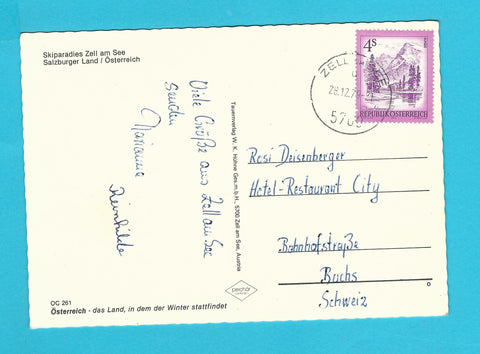 Skiparadies Zell am See
Salzburger Land / Österreich
Viele Grüße aus Zell am See
senden
Marianne
Reinhilde
Tauernverlag W. K. Hühne Ges.m.b.H., 5700 Zell am See, Austria
4 S
REPUBLIK ÖSTERREICH
ZELL AM SEE
5700
Rosi Deisenberger
Hotel-Restaurant City
Bahnhofstraße
Buchs
Schweiz
OC 261
Österreich - das Land, in dem der Winter stattfindet